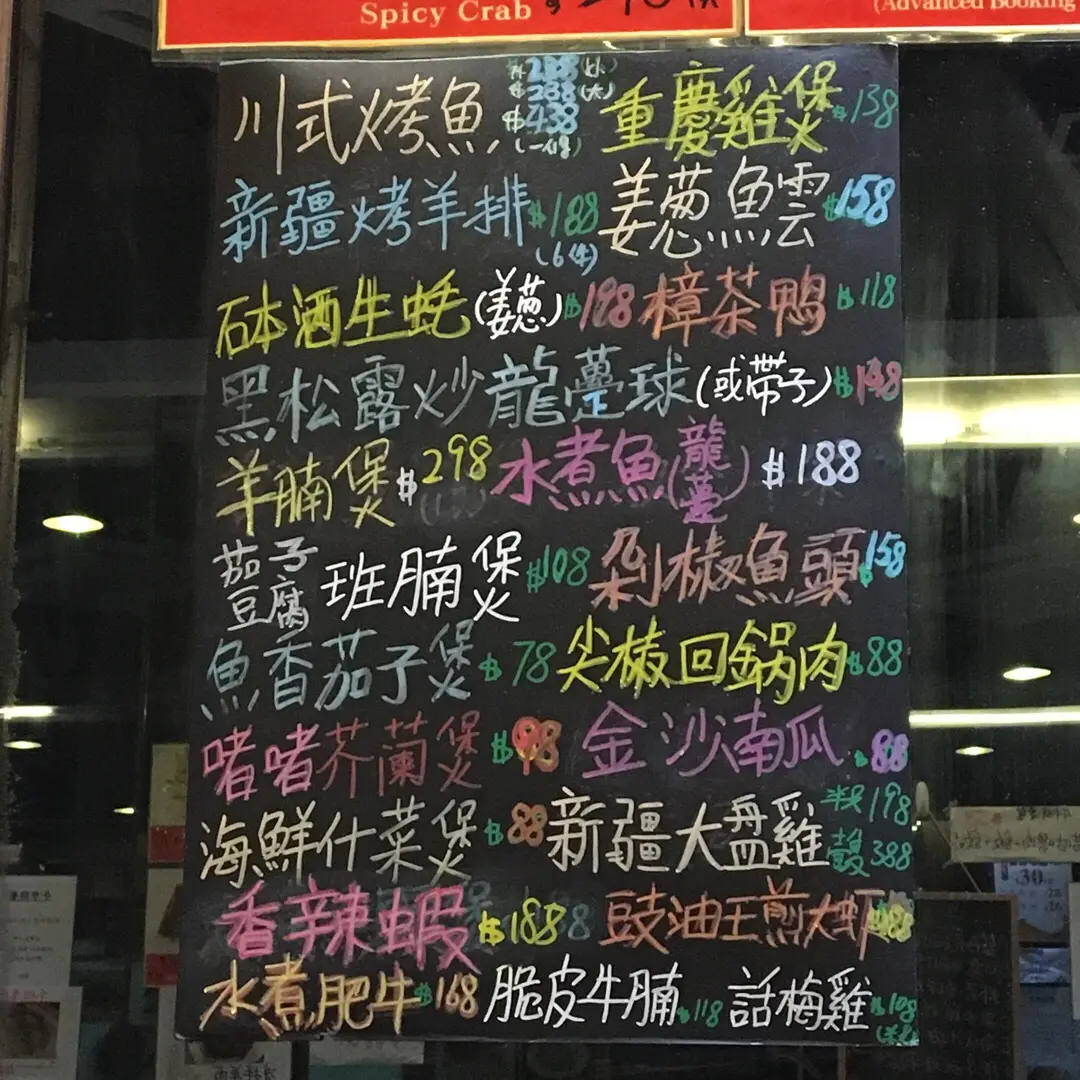 Spicy Crab
(Advanced Booking
川式烤魚 $238(小) $288(大) $438 重慶雞煲 $138
新疆烤羊排 $188 (6件) 姜葱魚雲 $158
砵酒生蚝(姜葱) $198 樟茶鴨 $118
黑松露炒龍躉球(或帶子) $148
羊腩煲 $298 水煮魚(龍躉) $188
茄子豆腐班腩煲 $108 剁椒魚頭 $158
魚香茄子煲 $78 尖椒回鍋肉 $88
啫啫芥蘭煲 $98 金沙南瓜 $88
海鮮什菜煲 $88 新疆大盤雞 半隻198 隻388
香辣蝦 $188 豉油王煎大虾 $188
水煮肥牛 $168 脆皮牛腩 $118 話梅雞 $108